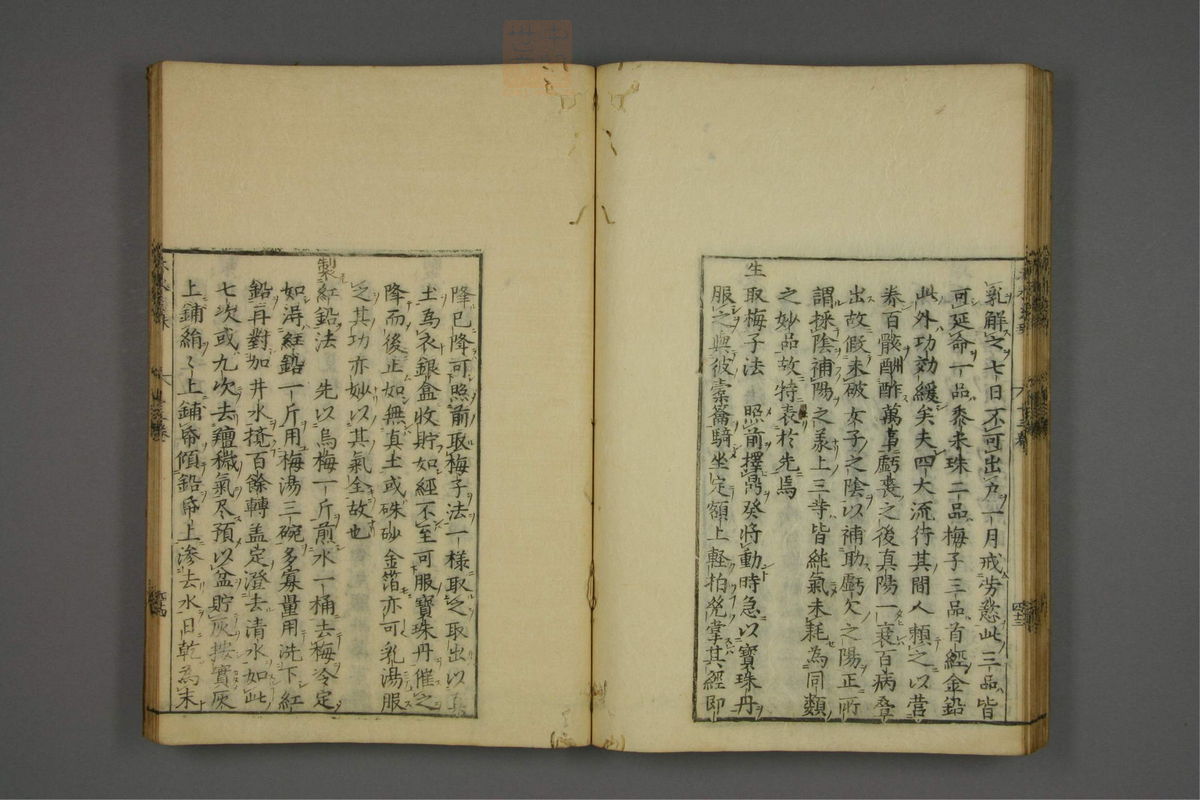 乳解之七日不可出戶一月戒勞慾此三品皆
可延命一品黍米珠二品梅子三品首經金鉛
此外功効緩矣夫四大流行其間人賴之以營
養百骸酬酢萬事虧喪之後真陽一衰百病疊
出故假未破女子之陰以補助虧欠之陽正所
謂採陰補陽之義上三等皆純氣未耗為同類
之妙品故特表於先焉
生取梅子法 照前擇鼎癸將動時急以寶珠丹
服之與彼橐籥騎坐定額上輕拍凳掌其經即
降已降可照前取梅子法一樣取之取出以
土為衣銀盒收貯如經不至可服寶珠丹催之
降而後止如無真土或硃砂金箔亦可乳湯服
之其功亦妙以其氣全故也
製紅鉛法 先以烏梅一斤煎水一桶去梅冷定
如淂紅鉛一斤用梅湯三碗多寡量用洗下紅
鉛再對加井水攪百餘轉盖定澄去清水如此
七次或九次去羶穢氣尽預以盆貯灰按實灰
上鋪絹〻上鋪帋傾鉛帋上滲去水日乾為末